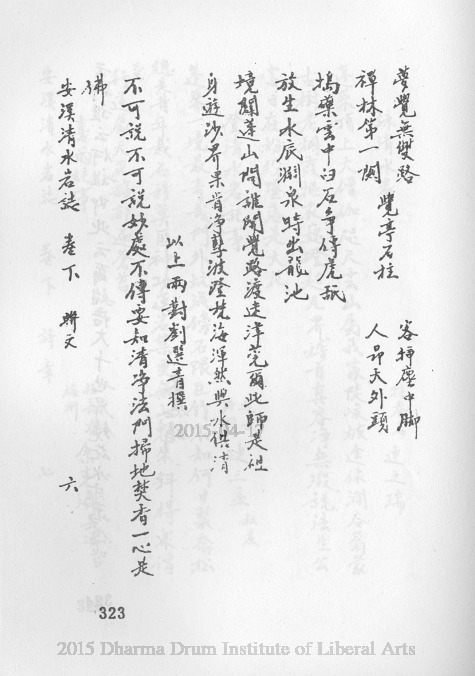 夢覺無雙路　客掃塵中脚
禪林第一關　覺亭石柱　人昂天外頭
搗藥雲中臼石爭傳虎舐
放生水底湖泉時出龍池
境闢蓬山問誰閒覺路渡迷津莞爾此師是祖
身遊沙界果肯淨孽波澄梵海渾然與水俱清
以上兩對劉選青撰
不可說不可說妙處不傳要知清淨法門掃地焚香一心是
佛
安溪清水岩誌　卷下　聯文　六
323
2015-04-1
2015 Dharma Drum Institute of Liberal Arts